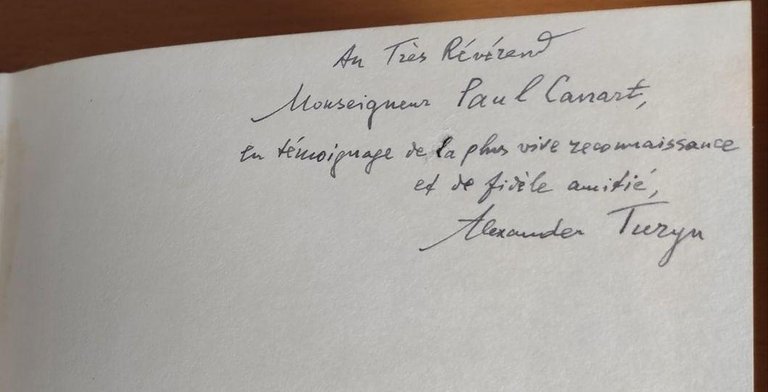 Au Très Révérend
Monseigneur Paul Canart,
en témoignage de la plus vive reconnaissance
et de fidèle amitié,
Alexander Turyn